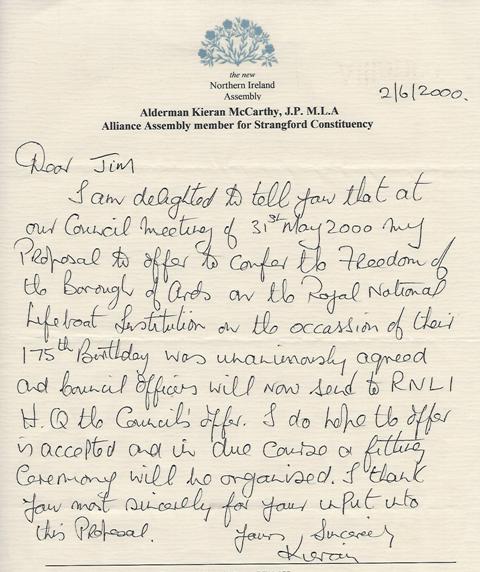 the new
Northern Ireland
Assembly
2/6/2000.
Alderman Kieran McCarthy, J.P. M.L.A
Alliance Assembly member for Strangford Constituency
Dear Jim
I am delighted to tell you that at
our Council meeting of 31st May 2000 my
Proposal to offer to confer the Freedom of
the Borough of Ards on the Royal National
Lifeboat Institution on the occassion of their
175th Birthday was unanimously agreed
and Council officers will now send to RNLI
H.Q the Council's offer. I do hope the offer
is accepted and in due course a fitting
Ceremony will be organised. I thank
you most sincerely for your input into
this Proposal. Yours Sincerely
Kieran